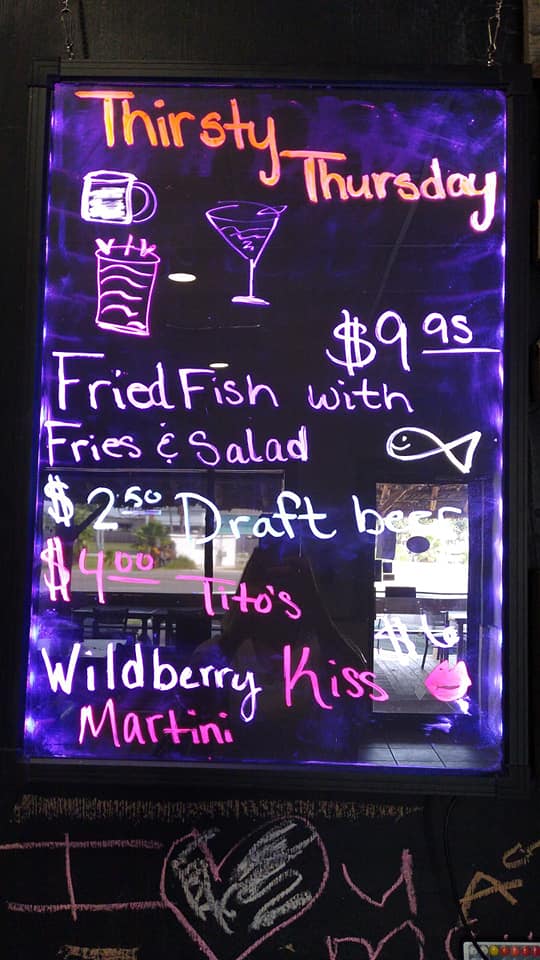 Thirsty
Thursday
$9 95
Fried Fish with
Fries & Salad
$2.50 Draft beer
$4.00 Tito's
$6
Wildberry Kiss
Martini
I ♥ y